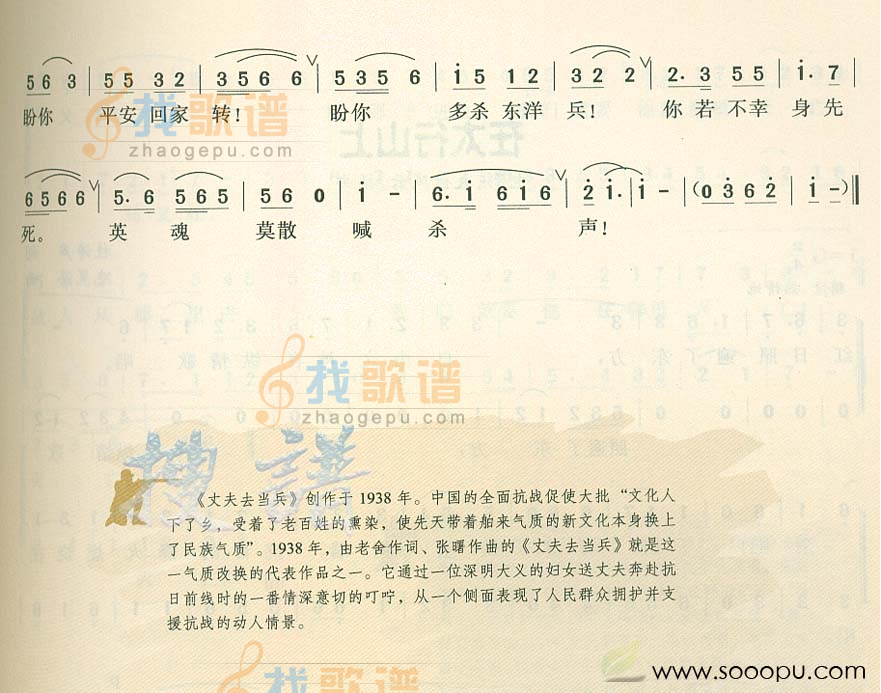 5 6 3 | 5 5 3 2 | 3 5 6 6 ∨ | 5 3 5 6 | i 5 1 2 | 3 2 2 ∨ | 2. 3 5 5 | i. 7 |
盼你 平安 回家 转! 盼你 多杀 东洋 兵! 你 若 不幸 身 先
找歌谱
zhaogepu.com
在太行山上
6 5 6 6 ∨ | 5. 6 5 6 5 | 5 6 0 | i - | 6. i 6 i 6 ∨ | 2 i. | i - | (0 3 6 2 | i -) ‖
死。 英 魂 莫散 喊 杀 声!
找歌谱
zhaogepu.com
搜谱
《丈夫去当兵》创作于 1938 年。中国的全面抗战促使大批 “文化人
下了乡，受着了老百姓的熏染，使先天带着舶来气质的新文化本身换上
了民族气质”。1938 年，由老舍作词、张曙作曲的《丈夫去当兵》就是这
一气质改换的代表作品之一。它通过一位深明大义的妇女送丈夫奔赴抗
日前线时的一番情深意切的叮咛，从一个侧面表现了人民群众拥护并支
援抗战的动人情景。
找歌谱
www.sooopu.com